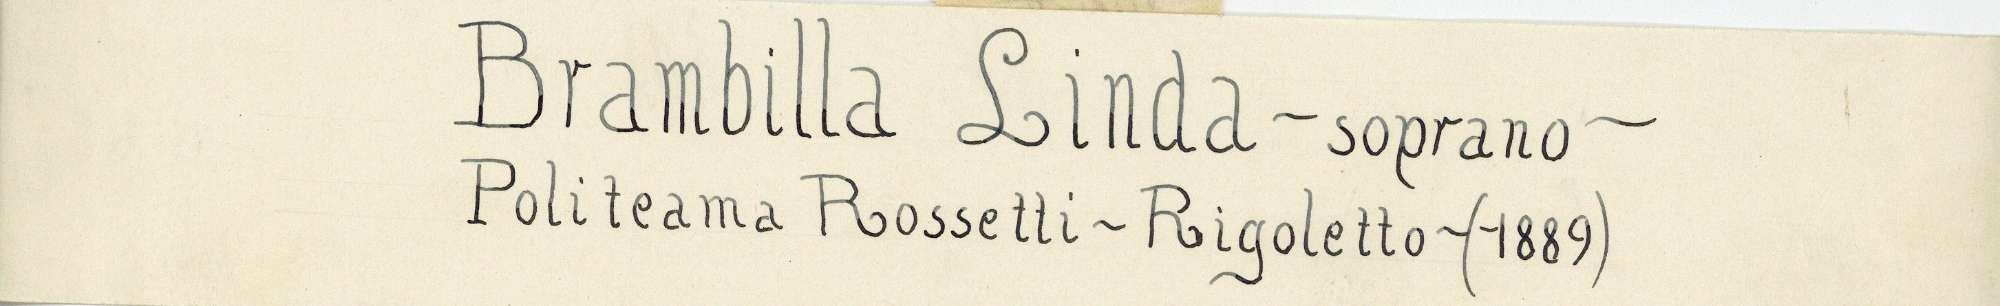 Brambilla Linda ~ soprano ~
Politeama Rossetti ~ Rigoletto ~ (~1889)